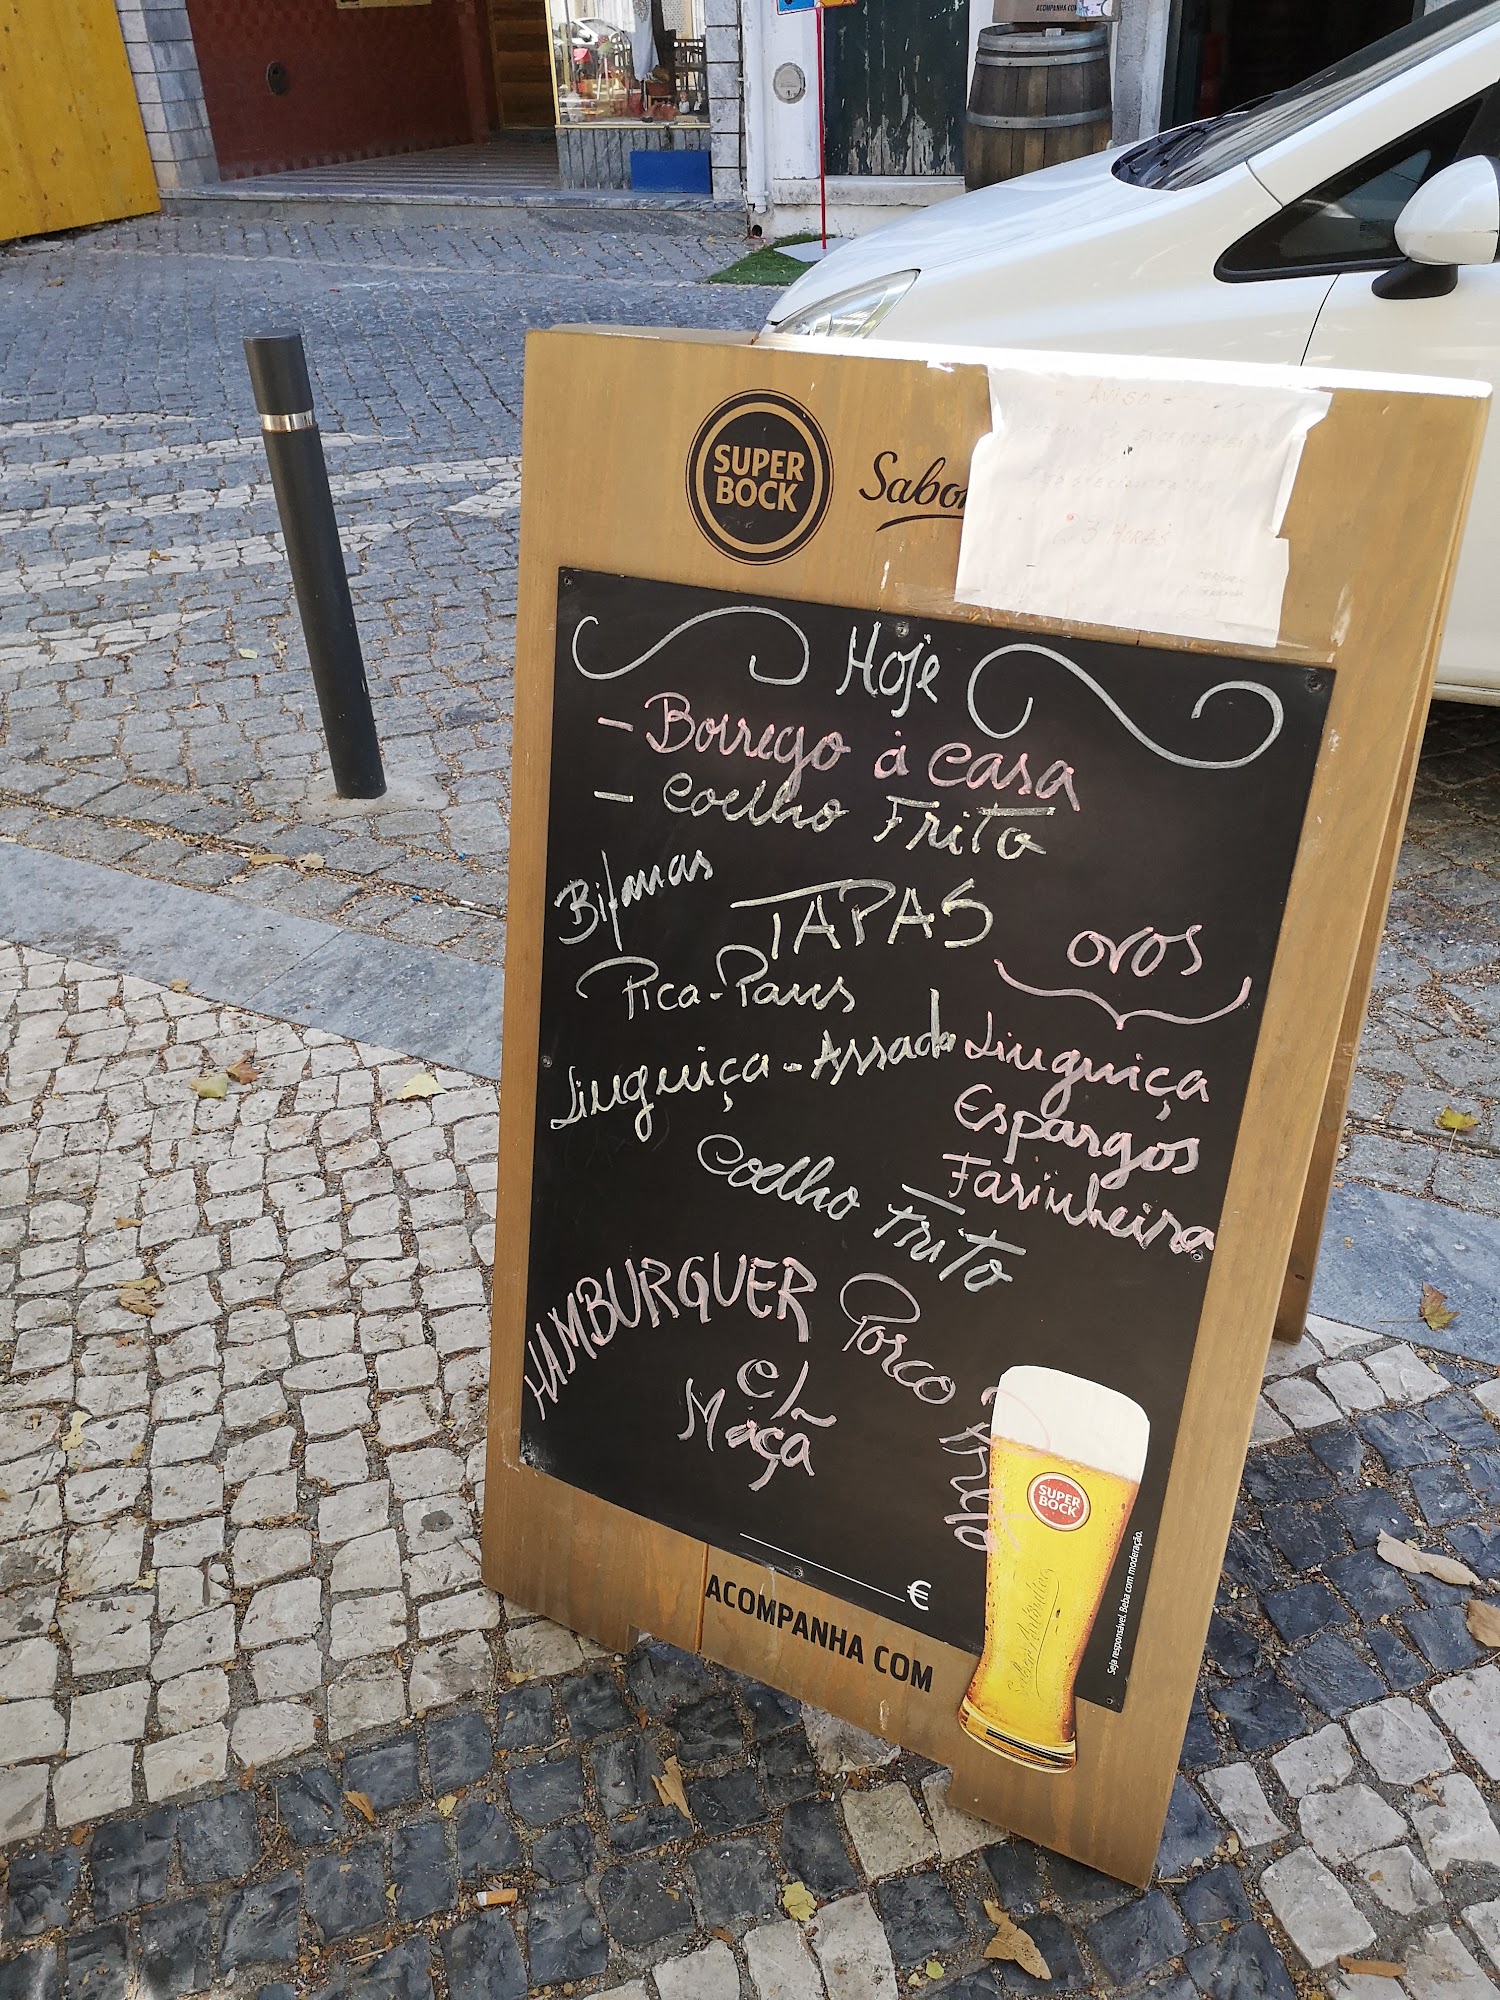 ACOMPANHA COM
SUPER
BOCK
= AVISO =
23 HORAS
Hoje
- Borrego à Casa
- Coelho Frito
Bifanas
TAPAS
Pica-Paus
Linguiça-Assada
Coelho Frito
OVOS
Linguiça
Espargos
Farinheira
HAMBURGUER
c/
Maçã
Porco Preto
€
SUPER
BOCK
Sabor Autêntico
Seja responsável. Beba com moderação.
ACOMPANHA COM